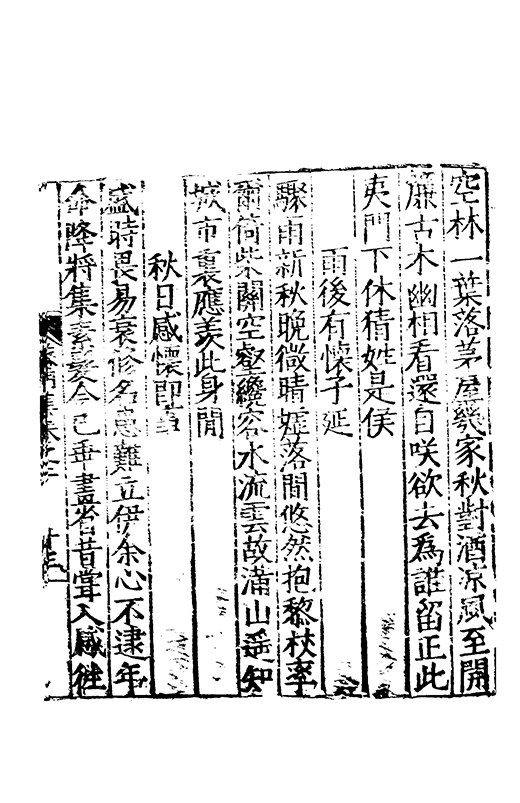 空林一葉落茅屋幾家秋對酒涼風至開
簾古木幽相看還自咲欲去為誰留正此
夷門下休猜姓是侯
雨後有懷子延
驟雨新秋晚微晴墟落間悠然抱藜杖率
爾倚柴關空壑纔容水流雲故滿山遥知
城市裏應羨此身閒
秋日感懷即事
盛時畏易衰修名患難立伊余心不逮年
命降將集素髮今已垂盡省昔嘗入感往